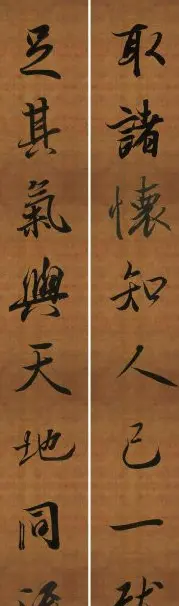 取諸懷知人已一
足其氣與天地同